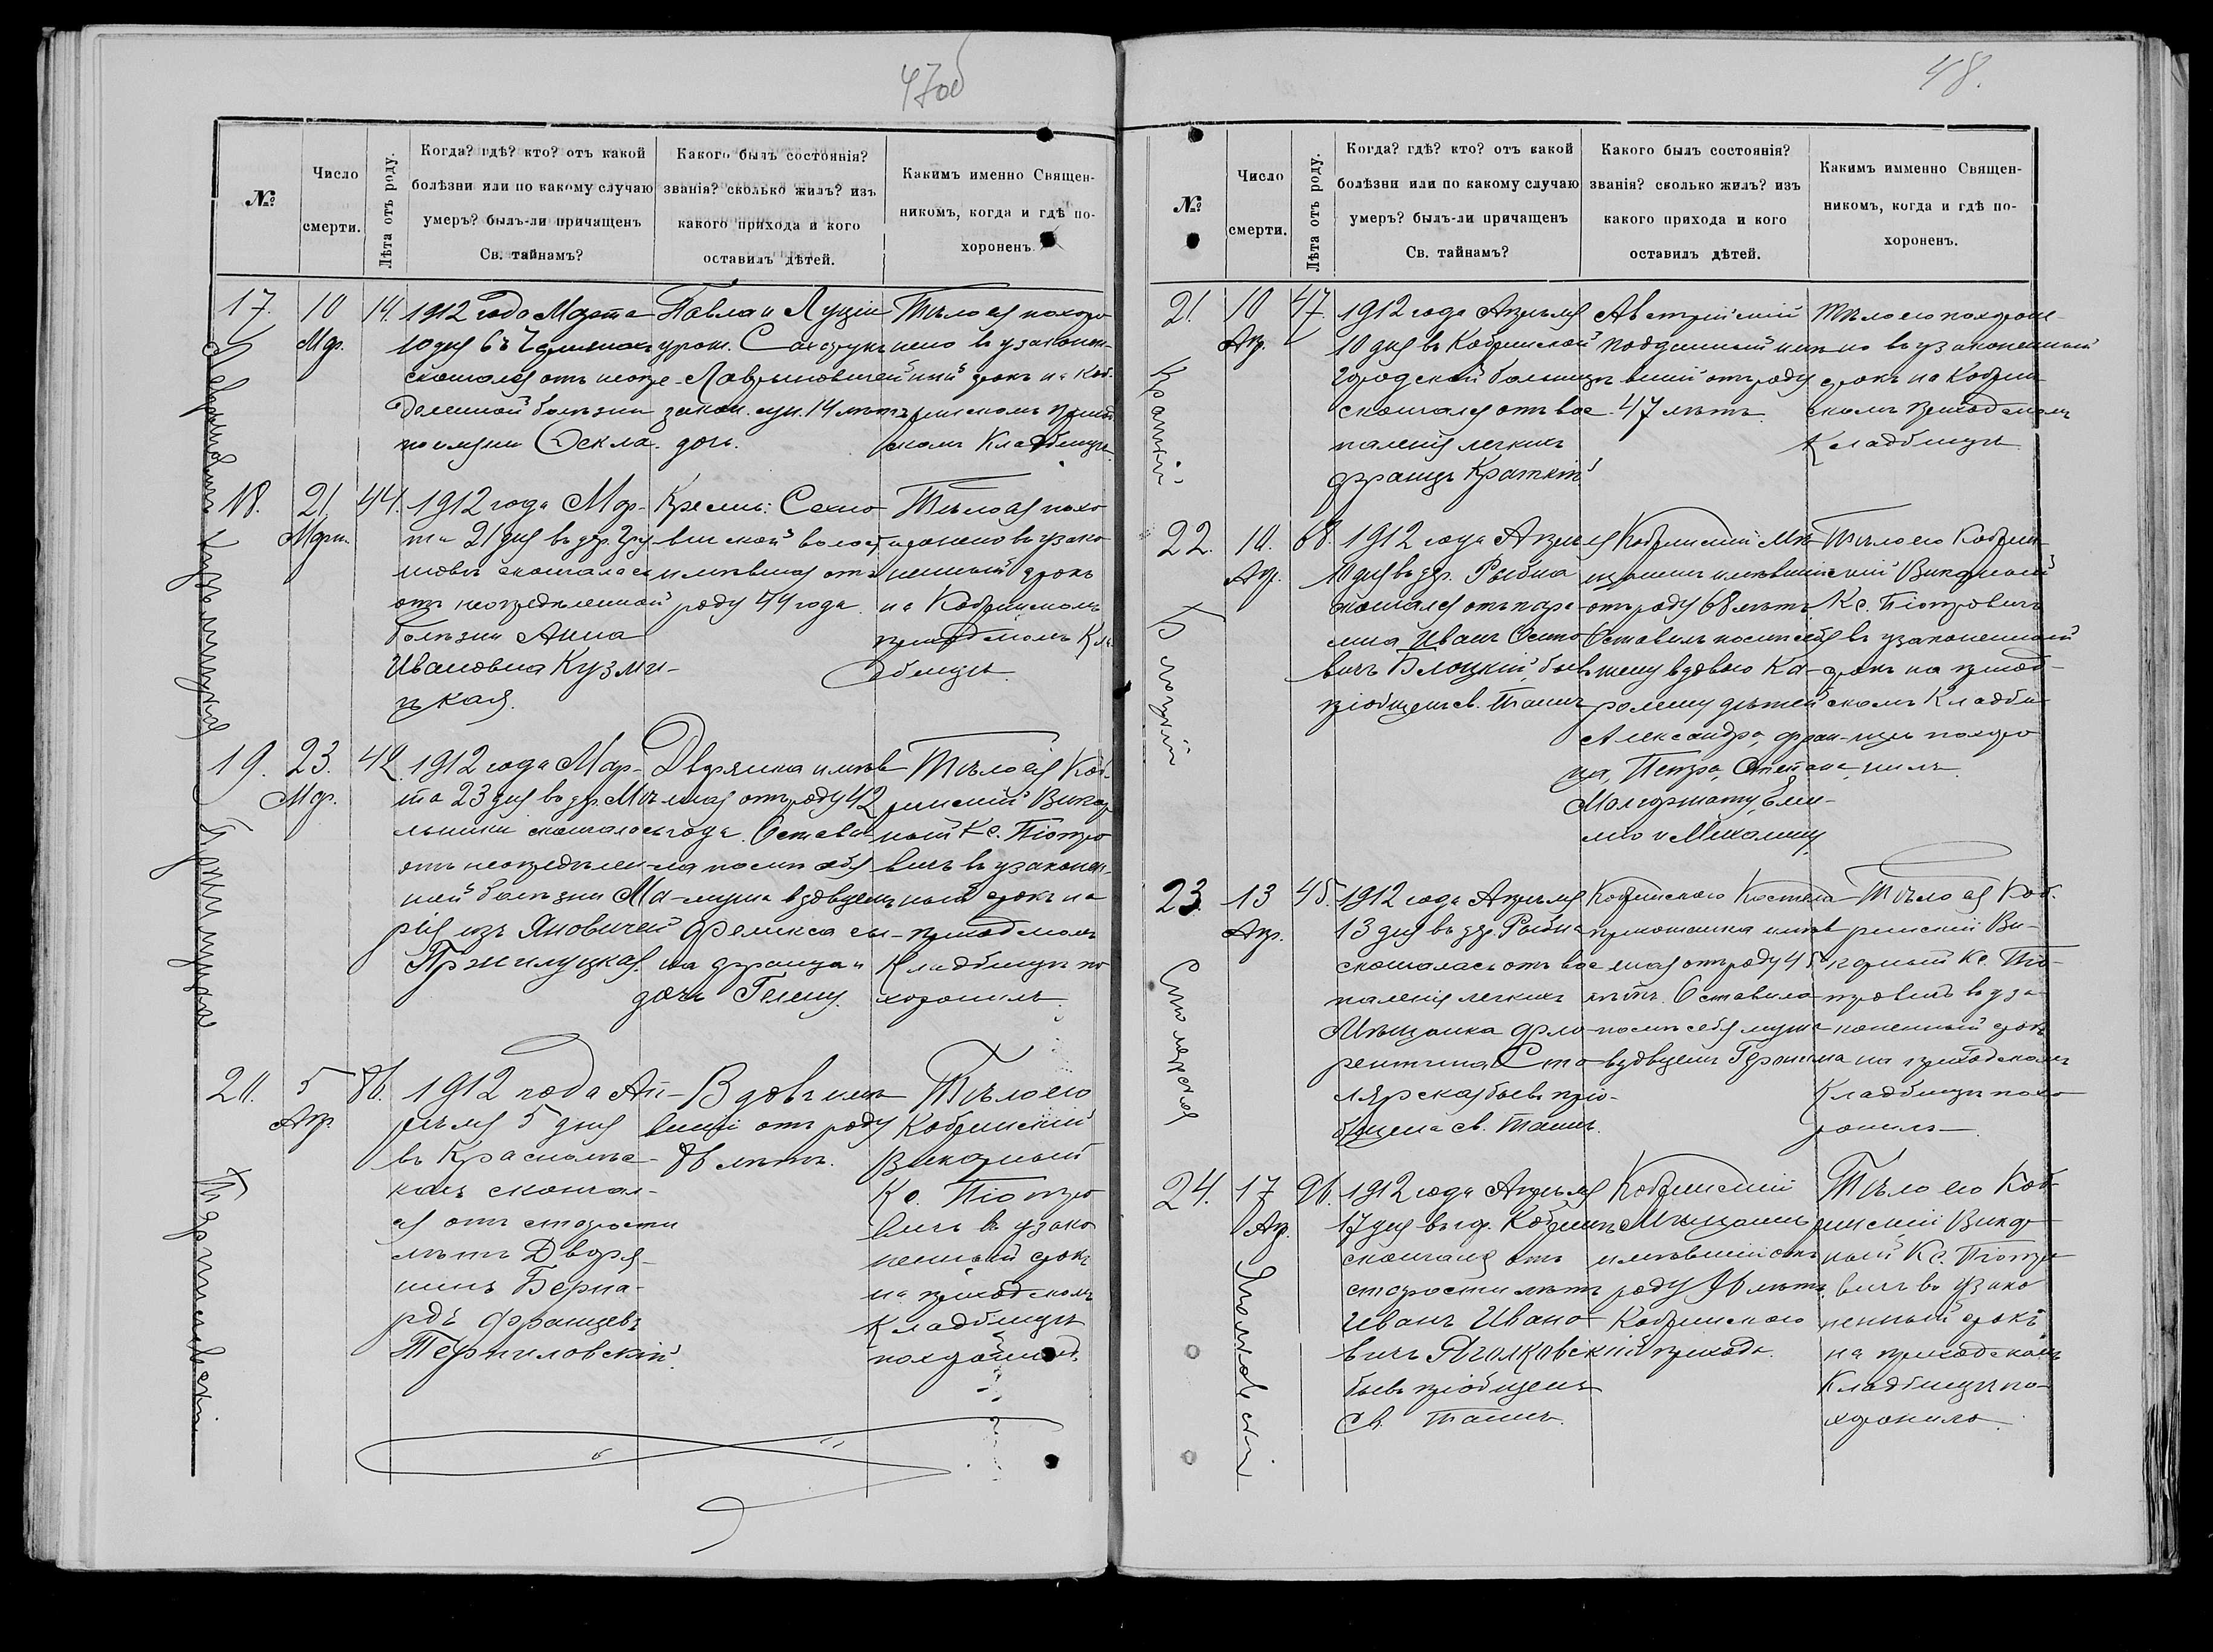 47об
№
Число
смерти.
Лѣта отъ роду.
Когда? гдѣ? кто? отъ какой
болѣзни или по какому случаю
умеръ? былъ-ли причащенъ
Св. тайнамъ?
Какого былъ состоянія?
званія? сколько жилъ? изъ
какого прихода и кого
оставилъ дѣтей.
Какимъ именно Священ-
никомъ, когда и гдѣ по-
хороненъ.
17.
10
Мар.
14.
1912 года Марта
10 дня въ
скончалась отъ неопре-
деленной болѣзни
по имени Текла
Павла и Луціи
урож. Сахарукъ
Лаврыновичей
закон. суп. 14 лѣтъ
дочь.
Тѣло ея похоро
нено въ узаконен-
ный срокъ на Коб-
ринскомъ приход
скомъ Кладбищѣ.
18.
21
Март.
44.
1912 года Мар-
та 21 дня въ дер.
скончалась
отъ неопредѣленной
болѣзни Анна
Ивановна Кузми-
цкая.
Крестьян: Сехно
вичской волост
имѣвшая отъ
роду 44 года.
Тѣло ея похо
ронено въ узако
ненный срокъ
на Кобринскомъ
приходскомъ Кла
дбищѣ.
Кузьмицкая
19.
23.
Мар.
42.
1912 года Мар-
та 23 дня въ дер.
скончалась
отъ неопредѣлен-
ной болѣзни Ма-
рія изъ Яновичей
Пржилуцкая.
Дворянка имѣв
шая отъ роду 42
года. Остави-
ла послѣ себя
мужа вдовцемъ
Феликса сы-
на Франца и
дочь Гелену.
Тѣло ея Коб-
ринскій Викар
ный Кс. Піотро
вичъ въ узаконен-
ный срокъ на
приходскомъ
Кладбищѣ по
хоронилъ.
Пржилуцкая
20.
5
Апр.
86.
1912 года Ап-
рѣля 5 дня
въ
скончал-
ся отъ старости
лѣтъ Дворя-
нинъ Берна-
рдъ Францевъ
Терпиловскій.
Вдовъ имѣ
вшій отъ роду
86 лѣтъ.
Тѣло его
Кобринскій
Викарный
Кс. Піотро
вичъ въ узако
ненный срокъ
на приходскомъ
Кладбищѣ
похоронилъ.
Терпиловскій
48.
№
Число
смерти.
Лѣта отъ роду.
Когда? гдѣ? кто? отъ какой
болѣзни или по какому случаю
умеръ? былъ-ли причащенъ
Св. тайнамъ?
Какого былъ состоянія?
званія? сколько жилъ? изъ
какого прихода и кого
оставилъ дѣтей.
Какимъ имменно Священ-
никомъ, когда и гдѣ по-
хороненъ.
21.
10
Апр.
47.
1912 года Апрѣля
10 дня въ Кобринской
городской больницѣ
скончался отъ вос
паленія легкихъ
Францъ Краткій
Австрійскій
подданный имѣ
вшій отъ роду
47 лѣтъ.
Тѣло его похороне
но въ узаконенный
срокъ на Кобрин
скомъ приходскомъ
Кладбищѣ.
Краткій
22.
10.
Апр.
68.
1912 года Апрѣля
10 дня въ дер. Рыбна
скончался отъ пара
лича Иванъ Осипо
вичъ Блоцкій, бывъ
пріобщенъ св. Таинъ
Кобринскій Мѣ
щанинъ имѣвшій
отъ роду 68 лѣтъ
Оставилъ послѣ себя
жену вдовою Ка-
ролину дѣтей
Александра, Фран-
ца, Петра, Степана,
Малгоржату, Еми-
лію и Михалину
Тѣло его Кобрин
скій Викарный
Кс. Піотровичъ
въ узаконенный
срокъ на приход-
скомъ Кладби
щѣ похоро
нилъ.
Блоцкій
23.
13
Апр.
45.
1912 года Апрѣля
13 дня въ дер. Рыбна
скончалась отъ вос
паленія легкихъ
Мѣщанка Фло-
рентина Сто-
лярская бывъ прі-
общена св. Таинъ.
Кобринскаго Костела
прихожанка имѣв
шая отъ роду 45
лѣтъ. Оставила
послѣ себя мужа
вдовцемъ Геронима
Тѣло ея Коб-
ринскій Ви-
карный Кс. Піо-
тровичъ въ уза-
коненный срокъ
на приходскомъ
Кладбищѣ похо
ронилъ.
Столярская
24.
17
Апр.
96.
1912 года Апрѣля
17 дня въ гор. Кобринѣ
скончался отъ
старости лѣтъ
Иванъ Ивано
вичъ Яголковскій
бывъ пріобщенъ
Св. Таинъ.
Кобринскій
Мѣщанинъ
имѣвшій отъ
роду 96 лѣтъ.
Кобринскаго
прихода.
Тѣло его Коб-
ринскій Викар
ный Кс. Піотро
вичъ въ узако
ненный срокъ
на приходскомъ
Кладбищѣ по-
хоронилъ.
Яголковскій